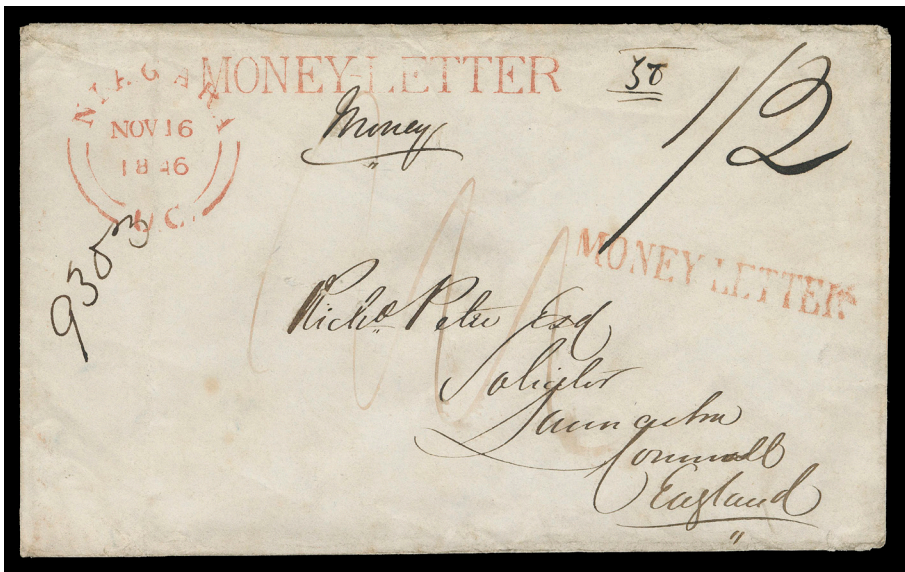 NIAGARA
NOV 16
1846
U.C.
MONEY-LETTER
Money
50
1/2
MONEY-LETTER
Richd Peter Esq
Solicitor
Launceston
Cornwall
England